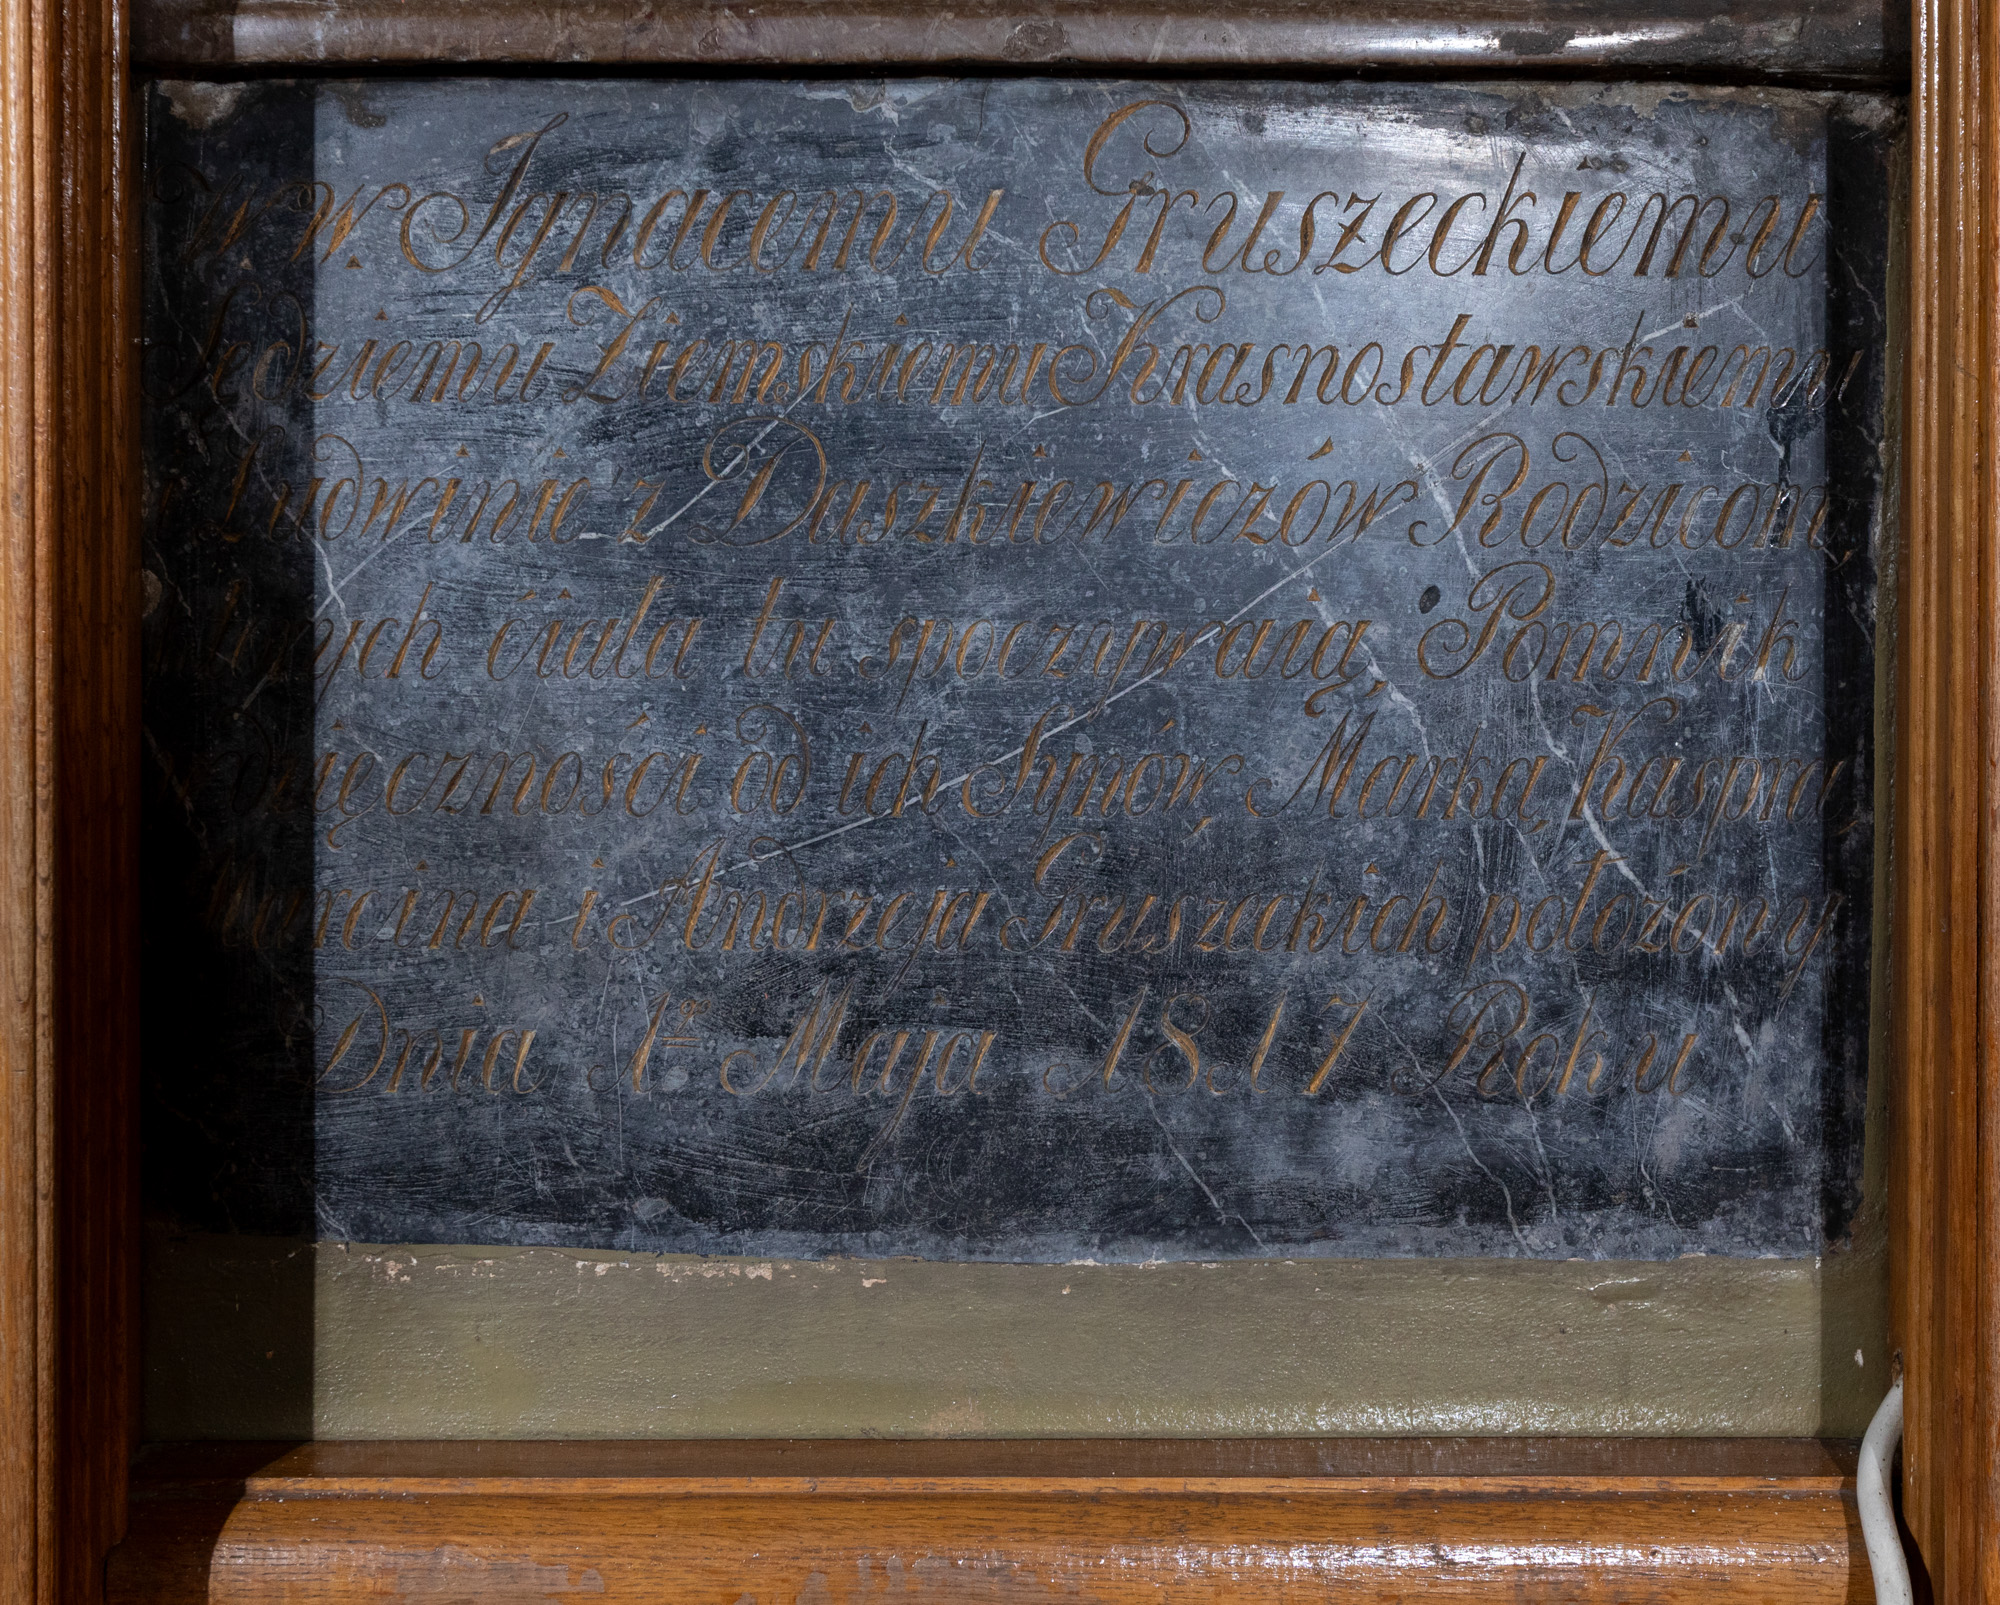 W w. Ignacemu Gruszeckiemu
Sędziemu Ziemskiemu Krasnostawskiemu
i Ludwinie z Daszkiewiczów Rodzicom,
których ćiała tu spoczywaią, Pomnik
wdzięczności od ich Synów, Marka, Kaspra,
Marcina i Andrzeja Gruszeckich położóny
Dnia 1go Maja 1817 Roku